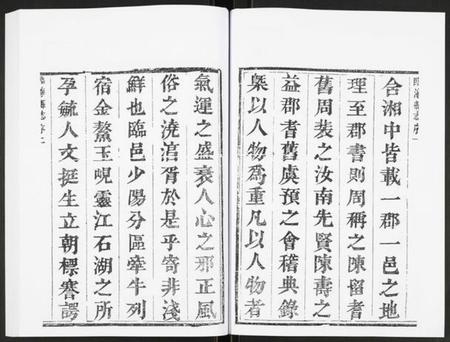 合湘中皆載一郡一邑之地
理至郡書則周稱之陳留耆
舊周裴之汝南先賢陳壽之
益郡耆舊虞預之會稽典錄
槩以人物爲重凡以人物者
氣運之盛衰人心之邪正風
俗之澆湻胥於是乎寄非淺
鮮也臨邑少陽分區牽牛列
宿金鰲玉峴靈江石湖之所
孕毓人文挺生立朝標謇諤